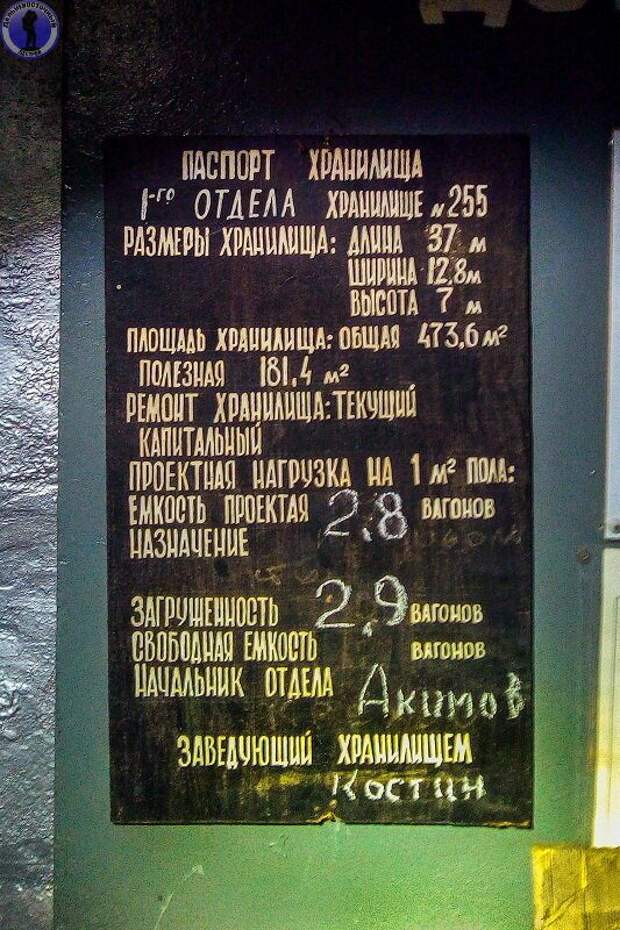 ПАСПОРТ ХРАНИЛИЩА
1-ГО ОТДЕЛА ХРАНИЛИЩЕ №255
РАЗМЕРЫ ХРАНИЛИЩА: ДЛИНА 37 М
ШИРИНА 12,8М
ВЫСОТА 7 М
ПЛОЩАДЬ ХРАНИЛИЩА: ОБЩАЯ 473,6М²
ПОЛЕЗНАЯ 181,4 М²
РЕМОНТ ХРАНИЛИЩА: ТЕКУЩИЙ
КАПИТАЛЬНЫЙ
ПРОЕКТНАЯ НАГРУЗКА НА 1 М² ПОЛА:
ЕМКОСТЬ ПРОЕКТАЯ 2.8 ВАГОНОВ
НАЗНАЧЕНИЕ
ЗАГРУЖЕННОСТЬ 2,9 ВАГОНОВ
СВОБОДНАЯ ЕМКОСТЬ ВАГОНОВ
НАЧАЛЬНИК ОТДЕЛА Акимов
ЗАВЕДУЮЩИЙ ХРАНИЛИЩЕМ
Костин